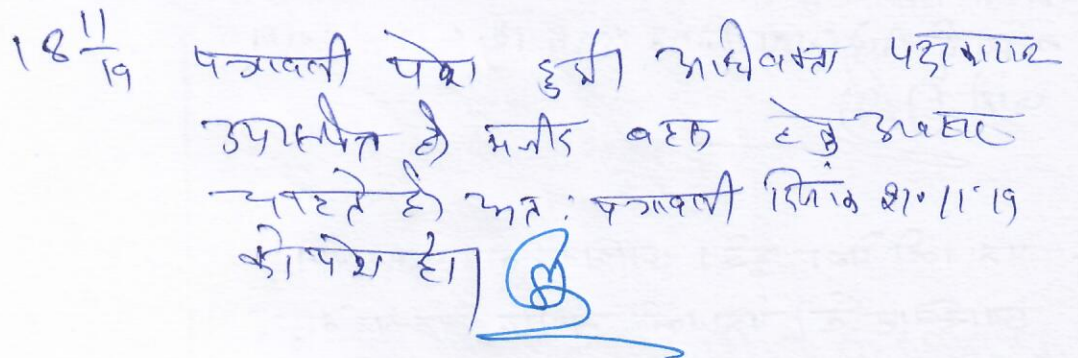 18 11/19 पत्रावली पेश हुई। अधिवक्ता पक्षकारान
उपस्थित है। मजीद बहस हेतु अवसर
चाहते है। अतः पत्रावली दिनांक 21.11.19
को पेश हो।